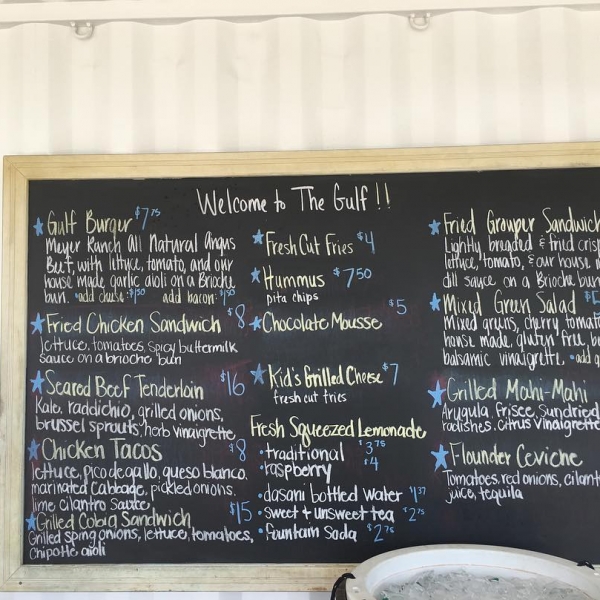 Welcome to The Gulf!!
Gulf Burger $7.75
Meyer Ranch All Natural Angus
Beef, with lettuce, tomato, and our
house made garlic aioli on a Brioche
bun. *add cheese: $1.50 add bacon: $1.50
Fried Chicken Sandwich $8
lettuce, tomatoes, spicy buttermilk
sauce on a brioche bun
Seared Beef Tenderloin $16
Kale, raddichio, grilled onions,
brussel sprouts, herb vinaigrette
Chicken Tacos $8
lettuce, pico de gallo, queso blanco,
marinated cabbage, pickled onions,
lime cilantro sauce,
Grilled Cobia Sandwich $15
Grilled spring onions, lettuce, tomatoes,
chipotle aioli
Fresh Cut Fries $4
Hummus $7.50
pita chips
Chocolate Mousse $5
Kid's Grilled Cheese $7
fresh cut fries
Fresh Squeezed Lemonade
• traditional $3.75
• raspberry $4
• dasani bottled water $1.37
• sweet & unsweet tea $2.75
• fountain soda $2.75
Fried Grouper Sandwich
Lightly breaded & fried crisp
lettuce, tomato, & our house m
dill sauce on a Brioche bun
Mixed Green Salad
Mixed greens, cherry tomato
house made, gluten free, b
balsamic vinaigrette. *add g
Grilled Mahi-Mahi
Arugula, frisee, sundried
radishes, citrus vinaigrette
Flounder Ceviche
Tomatoes, red onions, cilant
juice, tequila